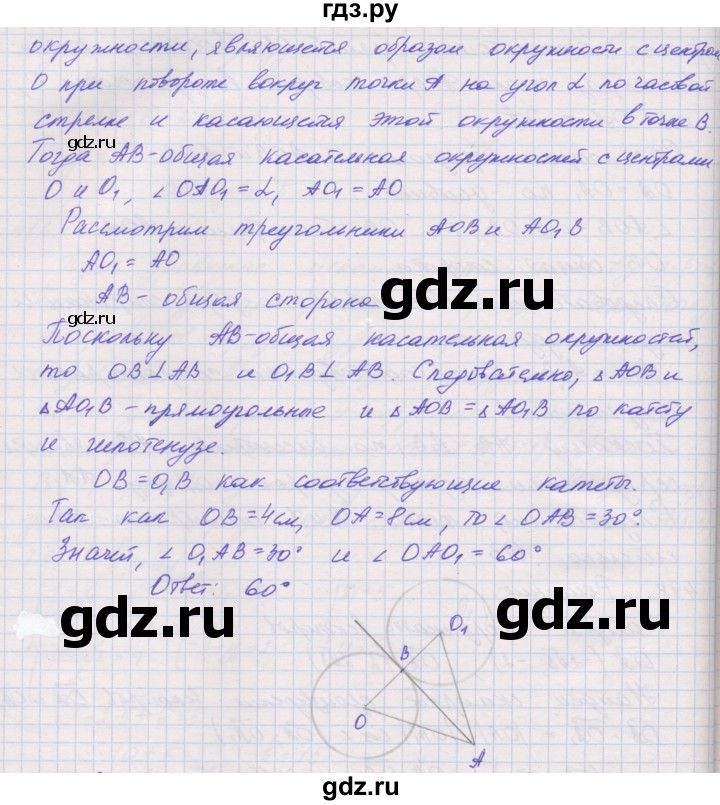 гдз.ру
окружности, являющейся образом окружности с центром
О при повороте вокруг точки А на угол α по часовой
стрелке и касающейся этой окружности в точке В.
gdz.ru
Тогда АВ-общая касательная окружностей с центрами
О и О₁, ∠ОАО₁ = α, АО₁ = АО
Рассмотрим треугольники АОВ и АО₁В
АО₁ = АО
АВ - общая сторона
gdz.ru
gdz.ru
Поскольку АВ-общая касательная окружностей,
то ОВ ⊥ АВ и О₁В ⊥ АВ. Следовательно, △АОВ и
△АО₁В - прямоугольные и △АОВ = △АО₁В по катету
и гипотенузе.
gdz.ru
ОВ = О₁В как соответствующие катеты.
Так как ОВ = 4см, ОА = 8см, то ∠ОАВ = 30°.
gdz.ru
Значит, ∠О₁АВ = 30° и ∠ОАО₁ = 60°
Ответ: 60°
gdz.ru
gdz.ru
О₁
В
О
А
gdz.ru
gdz.ru